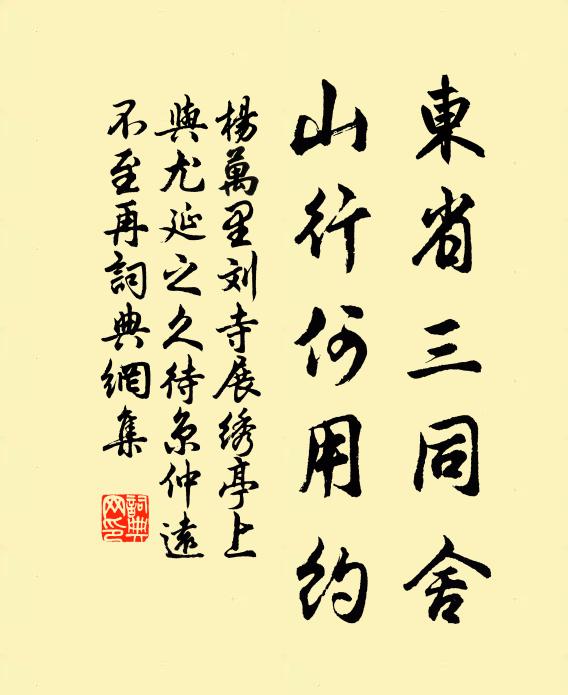 東省三同舍
山行何用約
楊萬里刘寺展绣亭上
與尤延之久待京仲遠
不至再詞典網集
詞典网印